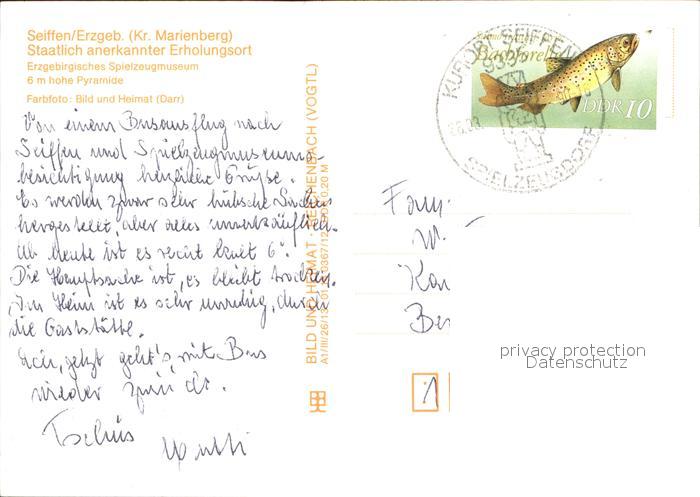 Seiffen/Erzgeb. (Kr. Marienberg)
Staatlich anerkannter Erholungsort
Erzgebirgisches Spielzeugmuseum
6 m hohe Pyramide
Farbfoto: Bild und Heimat (Darr)
Von einem Busausflug nach
Seiffen und Spielzeugmuseums-
besichtigung herzliche Grüße.
Es werden zwar sehr hübsche Sachen
hergestellt, aber alles unverkäuflich.
Ab heute ist es recht kalt 6°.
Die Hauptsache ist, es bleibt trocken.
Im Heim ist es sehr unruhig, durch
die Gaststätte.
jetzt geht's mit Bus
wieder zurück.
Tschüs
Mutti
BILD UND HEIMAT · REICHENBACH (VOGTL)
A1/III/26/13
KURORT SEIFFEN
SPIELZEUGDORF
Bachforelle
DDR 10
Fam.
W.
Kar
Ber
1
privacy protection
Datenschutz